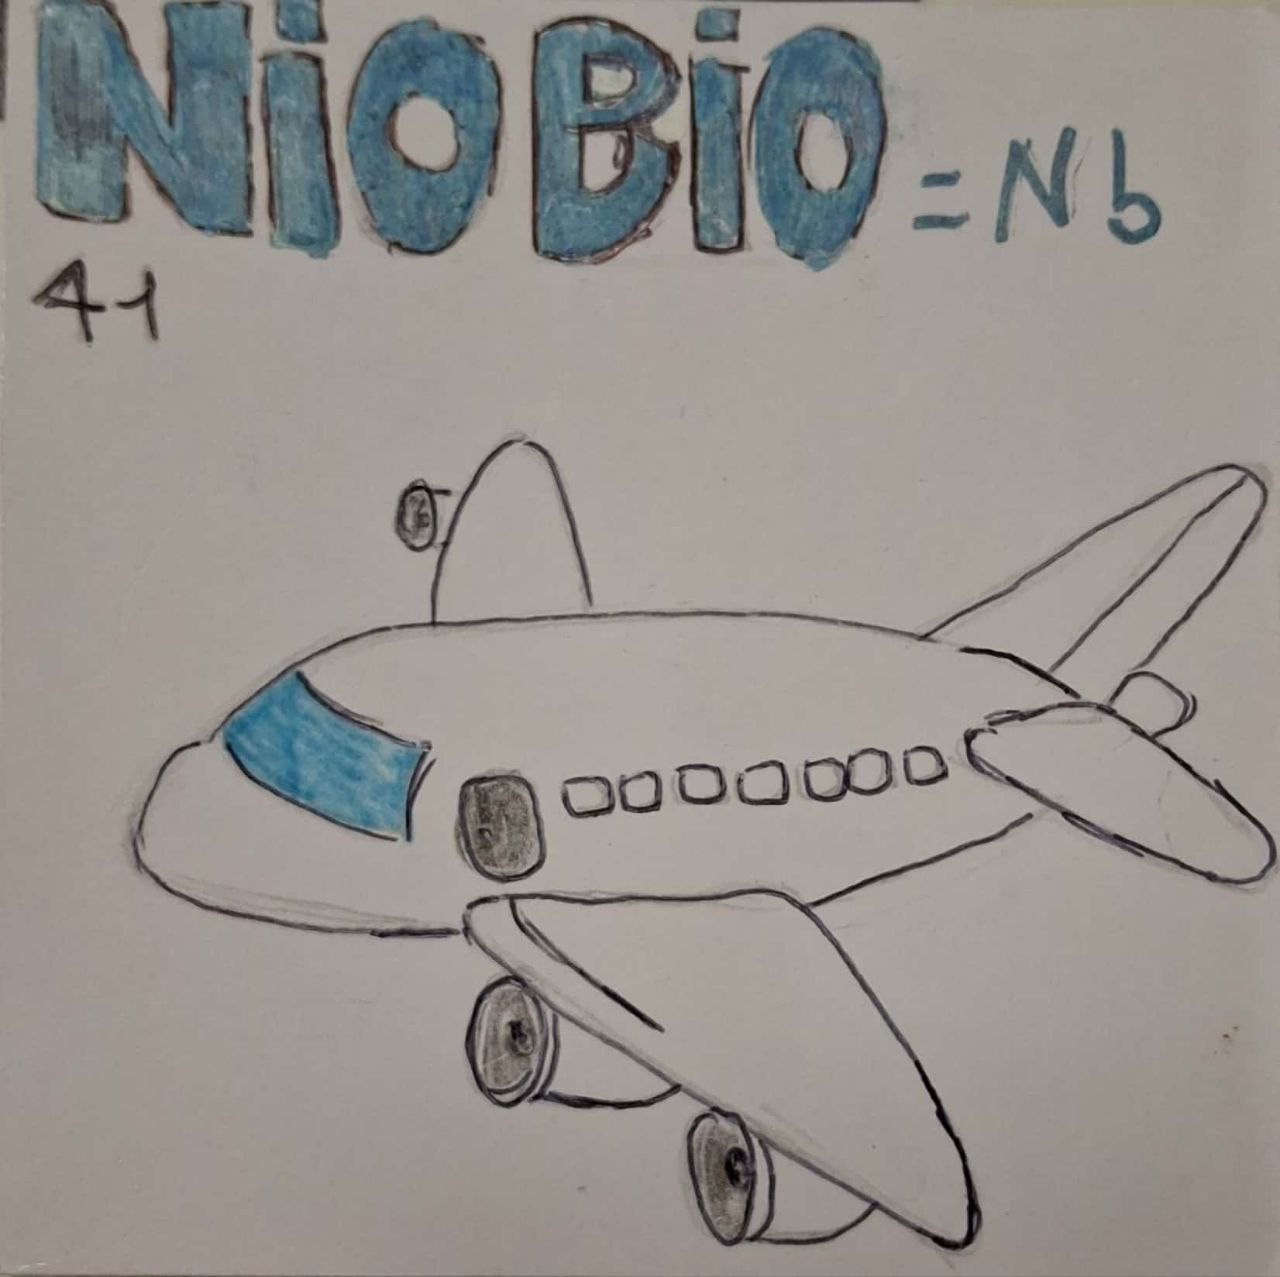 NiOBiO = Nb
41